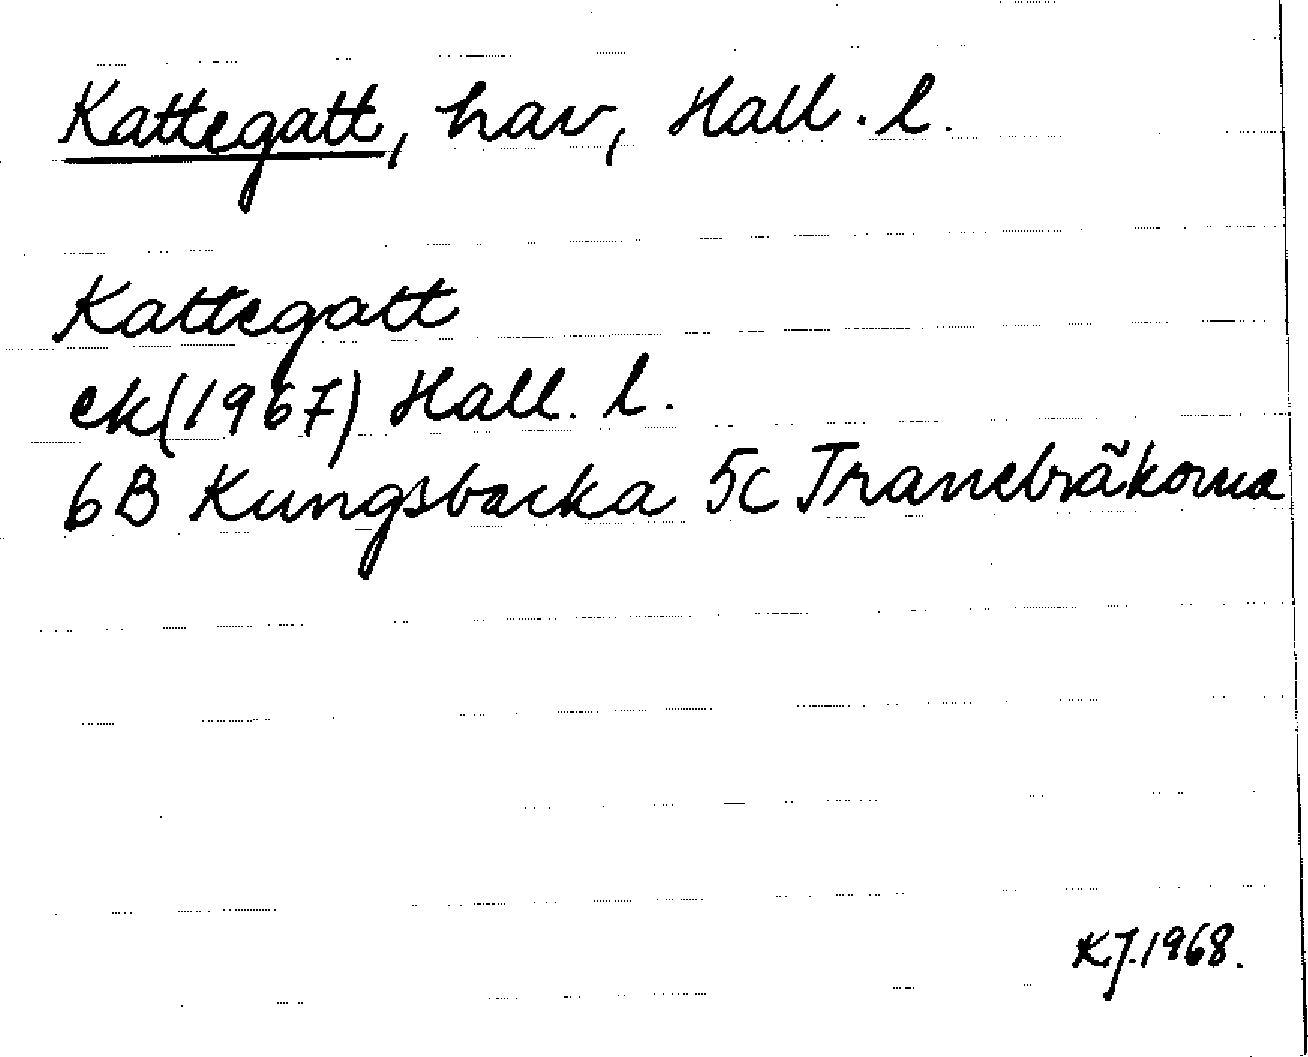 Kattegatt, hav, Hall. l.
Kattegatt
ek(1967) Hall. l.
6B Kungsbacka 5c Tranebräkorna
KJ.1968.